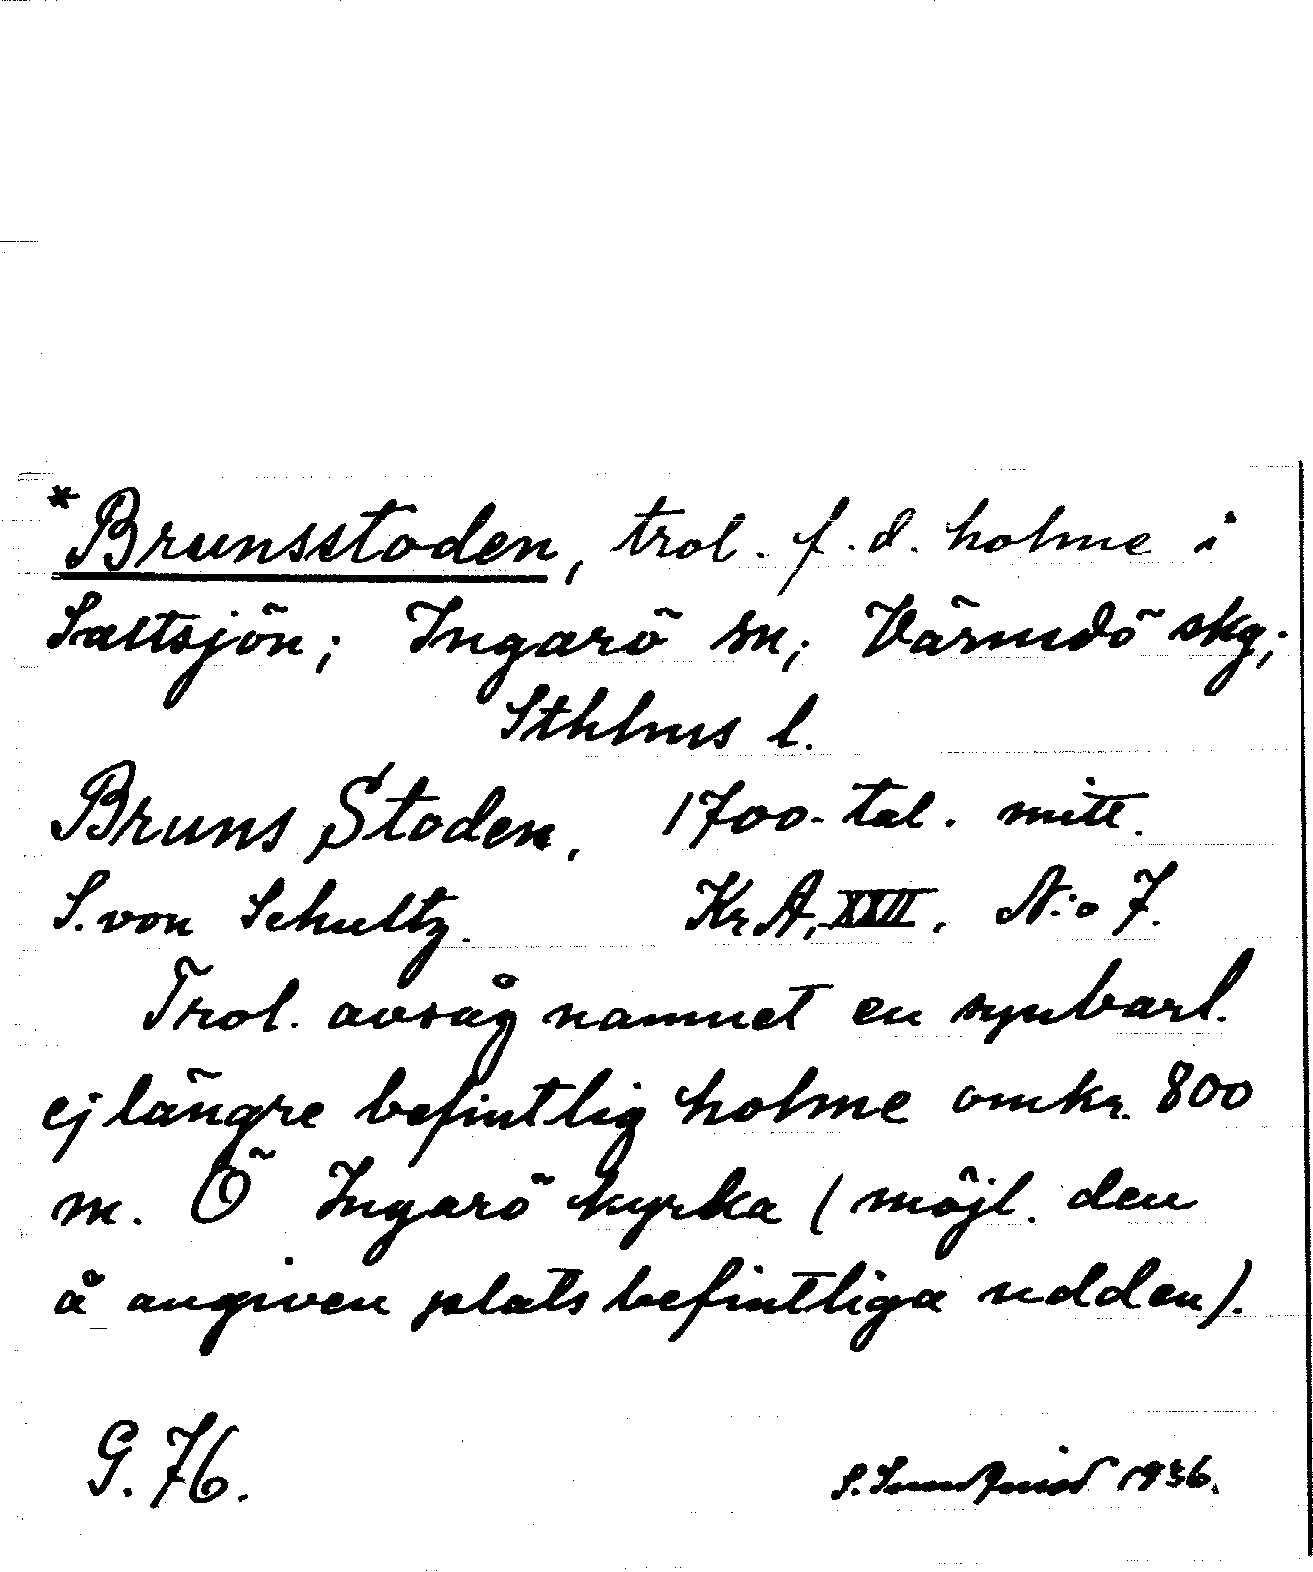 *Brunsstoden, trol. f.d. holme i
Saltsjön; Ingarö sn; Värmdö skg;
Sthlms l.
Bruns Stoden, 1700-tal. mitt.
S. von Schultz. KrA, XXII, N:o 7.
Trol. avsåg namnet en synbarl.
ej längre befintlig holme omkr. 800
m. Ö Ingarö kyrka (möjl. den
å angiven plats befintliga udden).
G. 76. S. 1936.